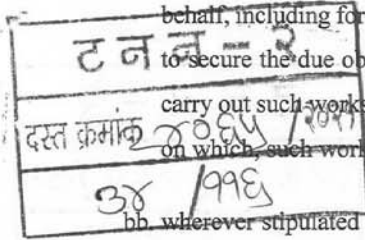 behalf, including for
ट न न - २
to secure the due ob
carry out such works
दस्त क्रमांक
on which, such work
३४ /११६
bb. wherever stipulated